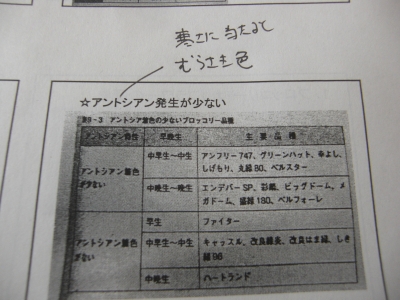 寒さに当たると
むらさき色
☆アントシアン発生が少ない
表9-3 アントシアン着色の少ないブロッコリー品種
アントシアン特性 早晩生 主要品種
アントシアン着色が少ない 中早生~中生 アンフリー747、グリーンハット、幸よし、
しげもり、丸緑80、ベルスター
中晩生~晩生 エンデバーSP、彩麟、ビッグドーム、メ
ガドーム、盛緑180、ベルフォーレ
アントシアン着色がない 早生 ファイター
中早生~中生 キャッスル、改良緑炎、改良はま緑、しき
緑96
中晩生 ハートランド